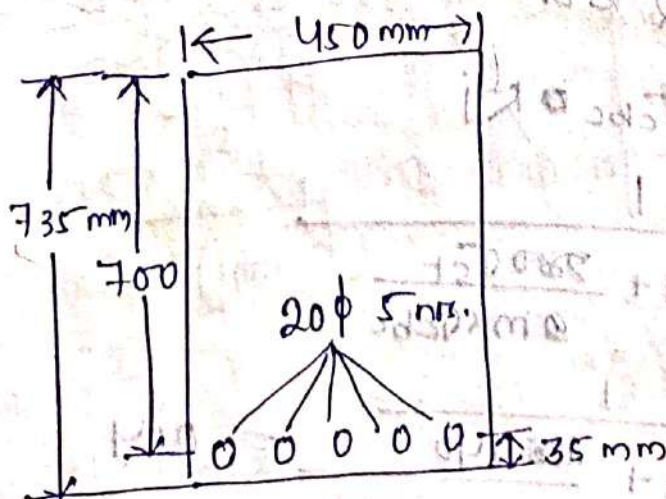 450 mm
735 mm
700
20ϕ 5 nos.
35 mm